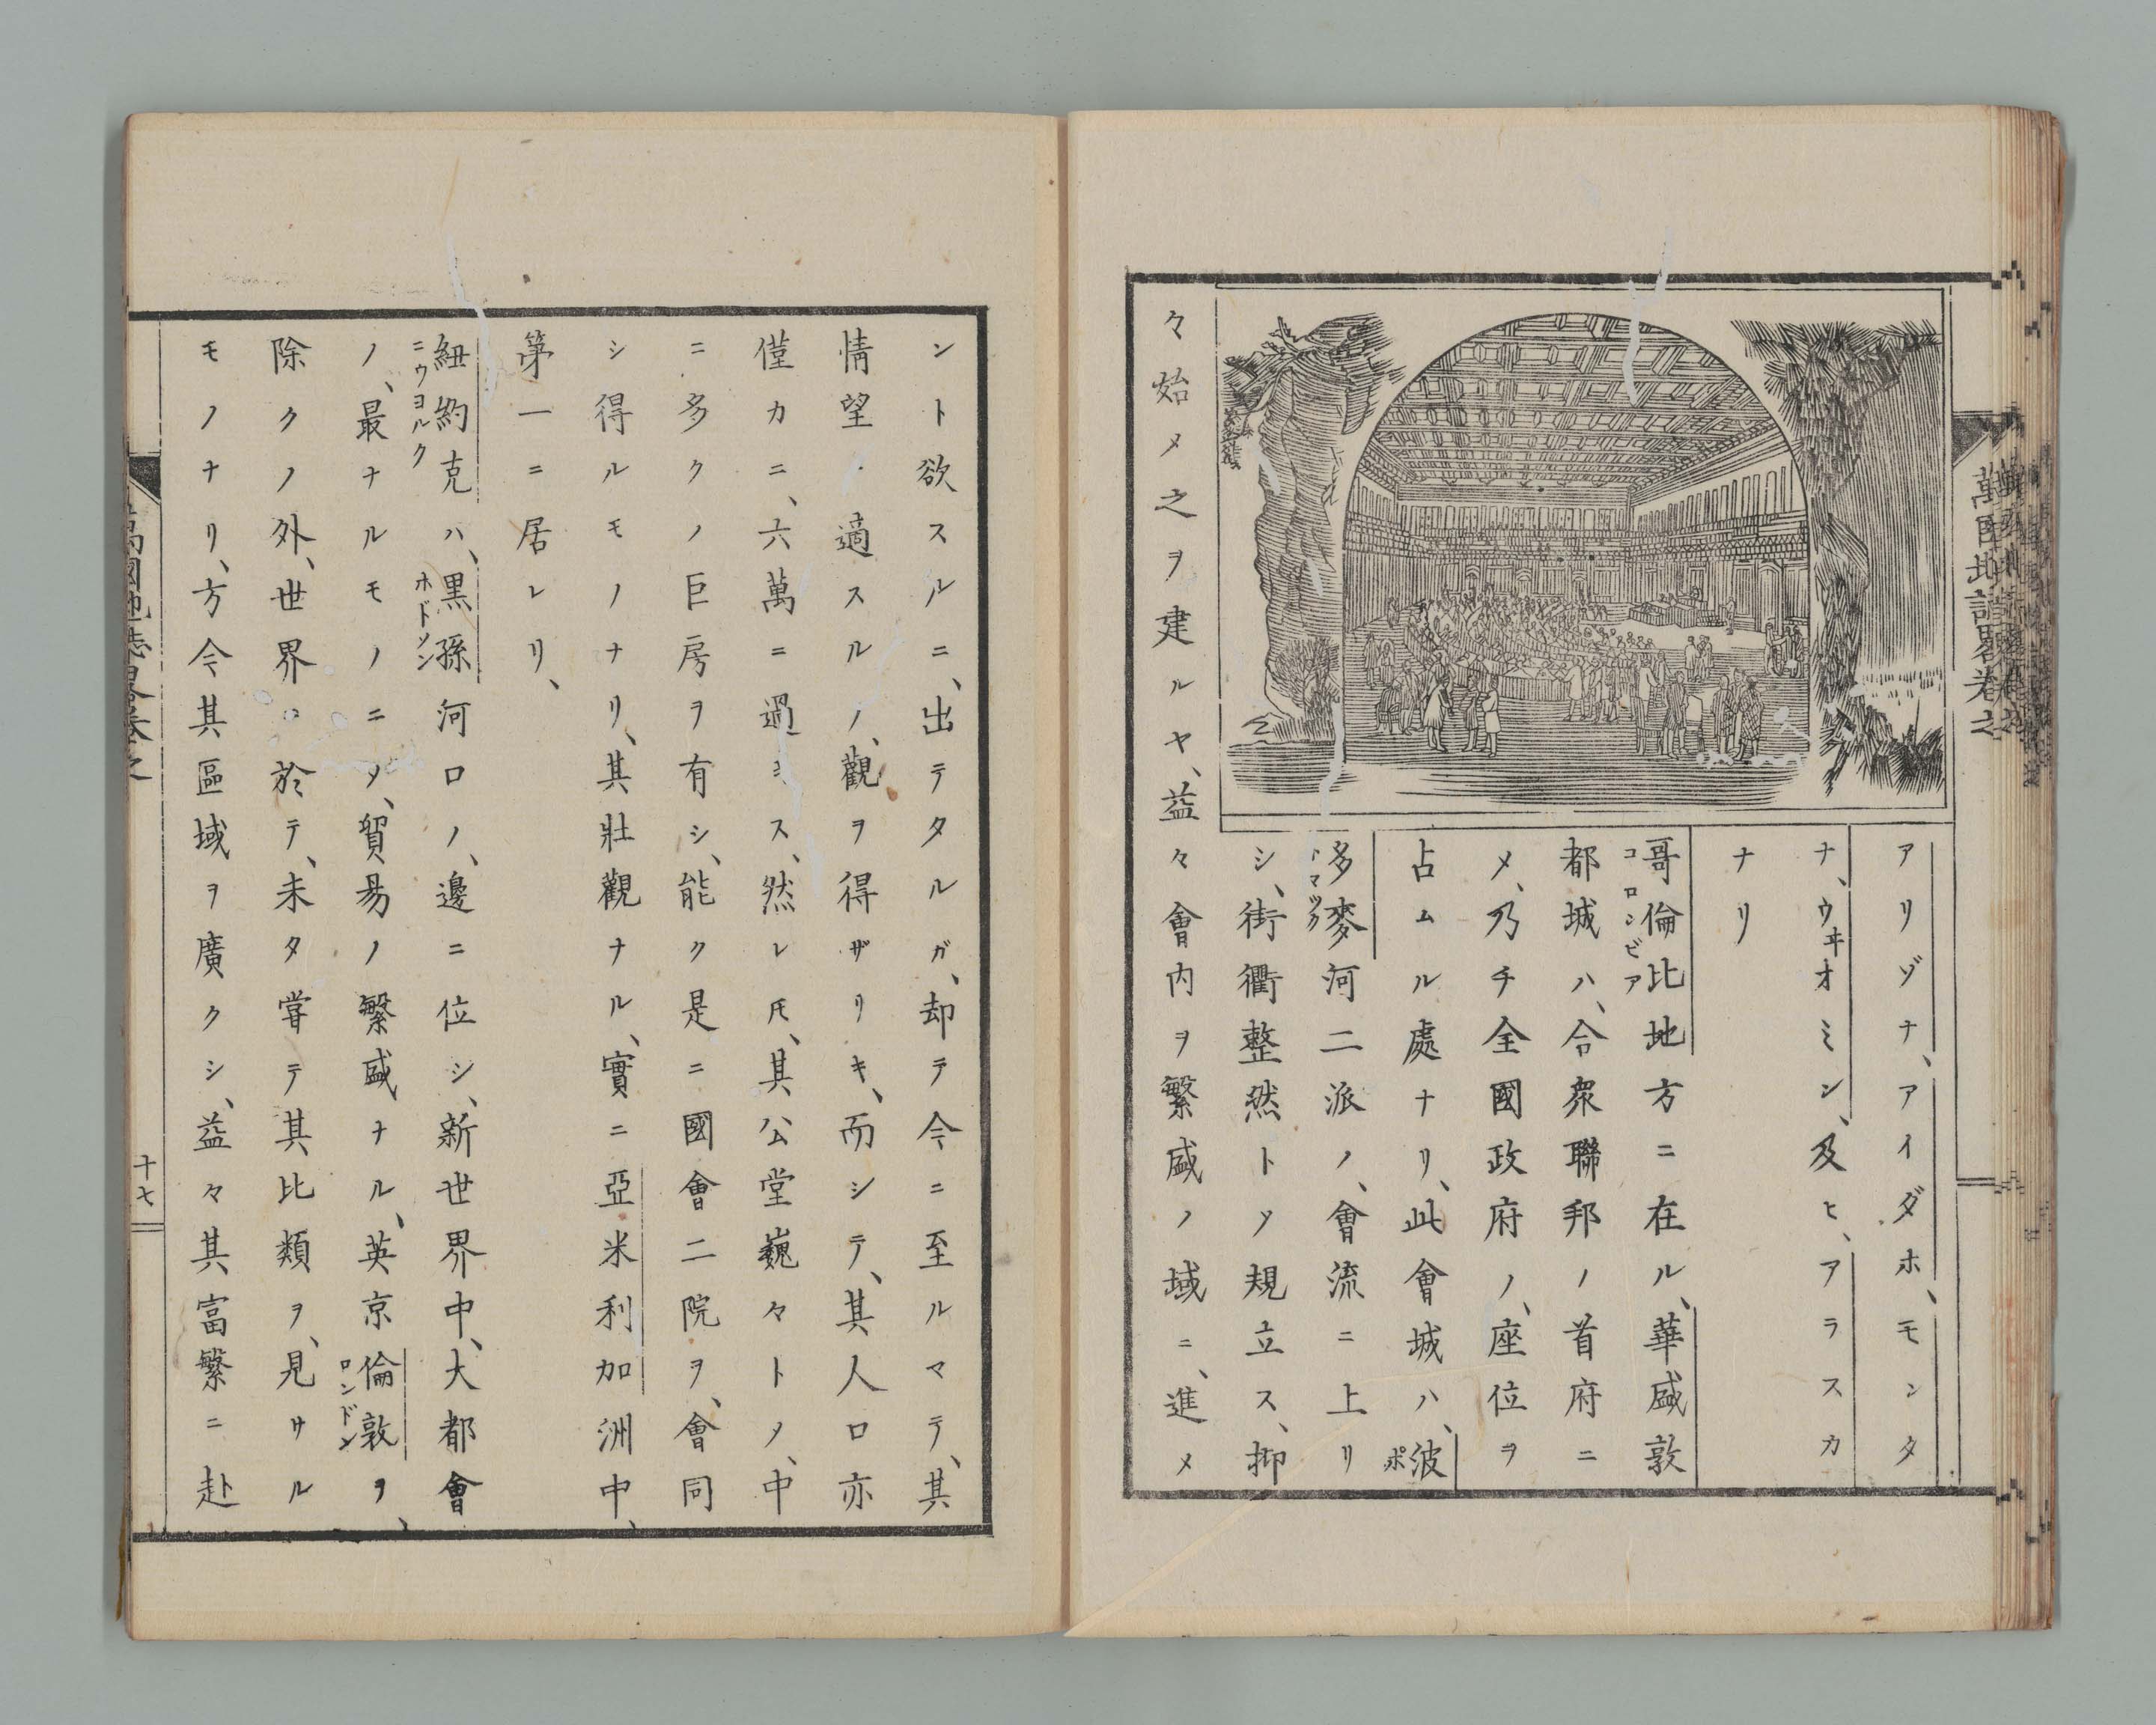 萬國地誌畧卷之
アリゾナ、アイダホ、モンタ
ナ、ウヰオミン、及ヒ、アラスカ
ナリ
哥倫比地方ニ在ル、華盛敦
コロンビア
都城ハ、合衆聯邦ノ首府ニ
メ、乃チ全國政府ノ、座位ヲ
占ムル處ナリ、此會城ハ、波
ポ
多麥河二派ノ、會流ニ上リ
トマック
シ、街衢整然トㇱテ規立ス、抑
々始メ之ヲ建ルヤ、益々會内ヲ繁盛ノ域ニ、進メ
ント欲スルニ、出テタルガ、却テ今ニ至ルマテ、其
情望ニ適スルノ、觀ヲ得ザリキ、而シテ、其人口亦
僅カニ、六萬ニ過キス、然レ𪜈、其公堂巍々トメ、中
ニ多クノ巨房ヲ有シ、能ク是ニ國會二院ヲ、會同
シ得ルモノナリ、其壯觀ナル、實ニ亞米利加洲中、
第一ニ居レリ、
紐約克ハ、黒孫河口ノ、邊ニ位シ、新世界中、大都會
ニウヨルク
ホドソン
ノ、最ナルモノニメ、貿易ノ繁盛ナル、英京倫敦ヲ、
ロンドン
除クノ外、世界ニ於テ、未タ嘗テ其比類ヲ、見サル
モノナリ、方今其區域ヲ廣クシ、益々其富繁ニ赴
萬國地誌畧卷之
十七